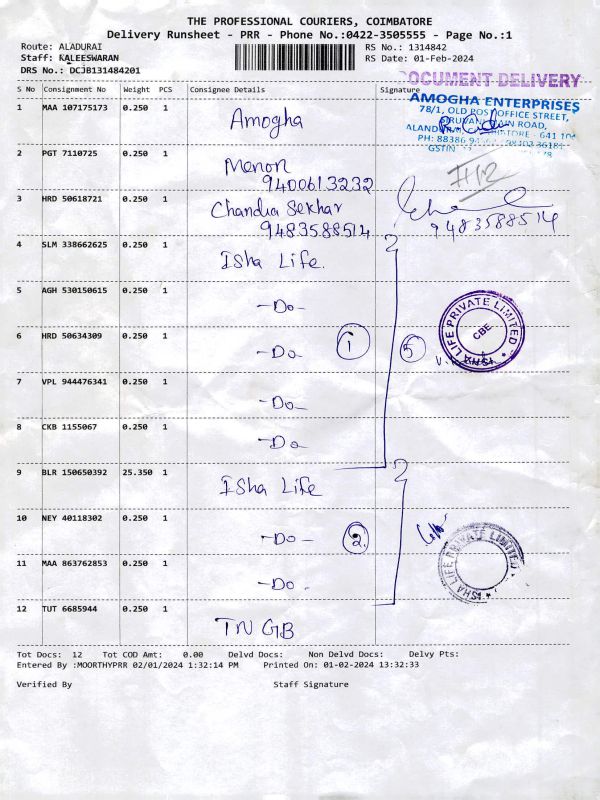 THE PROFESSIONAL COURIERS, COIMBATORE
Delivery Runsheet - PRR - Phone No.:0422-3505555 - Page No.:1
Route: ALADURAI RS No.: 1314842
Staff: KALEESWARAN RS Date: 01-Feb-2024
DRS No.: DCJB131484201
DOCUMENT DELIVERY
S No Consignment No Weight PCS Consignee Details Signature
AMOGHA ENTERPRISES
78/1, OLD POST OFFICE STREET,
1 MAA 107175173 0.250 1 Amogha
2 PGT 7110725 0.250 1 Menon
9400613232
3 HRD 50618721 0.250 1 Chandra Sekhar
9483588514 9483588514
4 SLM 338662625 0.250 1 Isha Life.
5 AGH 530150615 0.250 1 -Do-
6 HRD 50634309 0.250 1 -Do- 1 5
LIFE PRIVATE LIMITED
CBE
7 VPL 944476341 0.250 1 -Do-
8 CKB 1155067 0.250 1 -Do-
9 BLR 150650392 25.350 1 Isha Life
10 NEY 40118302 0.250 1 -Do- 2
ISHA LIFE PRIVATE LIMITED
11 MAA 863762853 0.250 1 -Do-
12 TUT 6685944 0.250 1 TNGB
Tot Docs: 12 Tot COD Amt: 0.00 Delvd Docs: Non Delvd Docs: Delvy Pts:
Entered By :MOORTHYPRR 02/01/2024 1:32:14 PM Printed On: 01-02-2024 13:32:33
Verified By Staff Signature